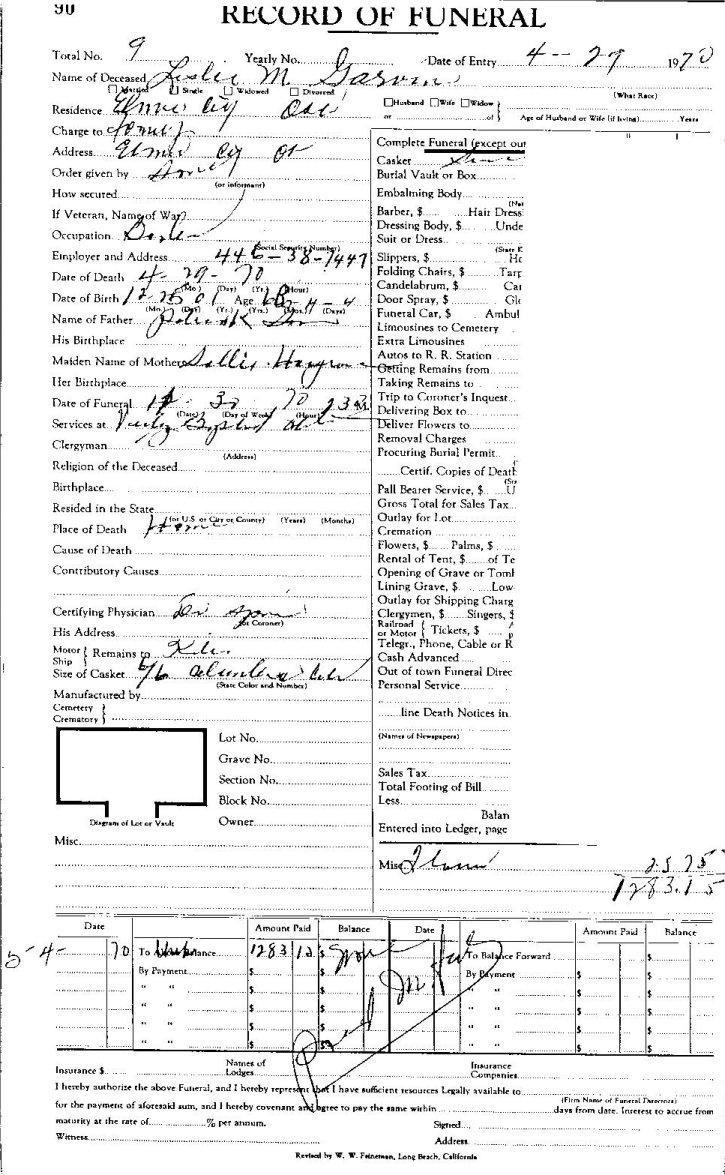 90
RECORD OF FUNERAL
Total No. 9 Yearly No. 9 Date of Entry 4-29 1970
Name of Deceased Leslie M Garvin
Married Single Widowed Divorced
(What Race)
Residence Elmer City
Husband Wife Widow
or of Age of Husband or Wife (if living) Years
Charge to
Address Elmer City
Order given by
(or informant)
How secured
If Veteran, Name of War
Occupation
(Social Security Number)
Employer and Address 446-38-7447
Date of Death 4-29-70
(Mo.) (Day) (Yr.) (Hour)
Date of Birth 12 25 01 Age 68-4-4
(Mo.) (Day) (Yr.) (Yrs.) (Mos.) (Days)
Name of Father
His Birthplace
Maiden Name of Mother Sallie
Her Birthplace
Date of Funeral 30 70
(Date) (Day of Week) (Hour)
Services at Baptist
Clergyman
(Address)
Religion of the Deceased
Birthplace
Resided in the State
(for U.S. or City or County) (Years) (Months)
Place of Death Home
Cause of Death
Contributory Causes
Certifying Physician Dr
(or Coroner)
His Address
Motor Ship Remains to
Size of Casket 6/6
(State Color and Number)
Manufactured by
Cemetery
Crematory
Lot No.
Grave No.
Section No.
Block No.
Owner
Diagram of Lot or Vault
Misc.
Complete Funeral (except out
Casket
Burial Vault or Box
Embalming Body
(Nat
Barber, $ Hair Dress
Dressing Body, $ Unde
Suit or Dress
(State K
Slippers, $ Ho
Folding Chairs, $ Tarp
Candelabrum, $ Car
Door Spray, $ Glo
Funeral Car, $ Ambul
Limousines to Cemetery
Extra Limousines
Autos to R. R. Station
Getting Remains from
Taking Remains to
Trip to Coroner's Inquest
Delivering Box to
Deliver Flowers to
Removal Charges
Procuring Burial Permit
Certif. Copies of Death
(Str
Pall Bearer Service, $ U
Gross Total for Sales Tax
Outlay for Lot
Cremation
Flowers, $ Palms, $
Rental of Tent, $ of Te
Opening of Grave or Tomb
Lining Grave, $ Low
Outlay for Shipping Charg
Clergymen, $ Singers, $
Railroad or Motor Tickets, $
Telegr., Phone, Cable or R
Cash Advanced
Out of town Funeral Direc
Personal Service
line Death Notices in
(Names of Newspapers)
Sales Tax
Total Footing of Bill
Less
Balan
Entered into Ledger, page
Misc. 25 75
1283.15
Date Amount Paid Balance Date Amount Paid Balance
5-4- 70 To Balance 1283 15 $ To Balance Forward $
By Payment $ $ By Payment $ $
" " $ $ " " $ $
" " $ $ " " $ $
" " $ $ " " $ $
" " $ $ " " $ $
Insurance $ Names of Lodges Insurance Companies
I hereby authorize the above Funeral, and I hereby represent that I have sufficient resources Legally available to
(Firm Name of Funeral Directors)
for the payment of aforesaid sum, and I hereby covenant and agree to pay the same within days from date. Interest to accrue from
maturity at the rate of % per annum. Signed
Witness Address
Revised by W. W. Feineman, Long Beach, California